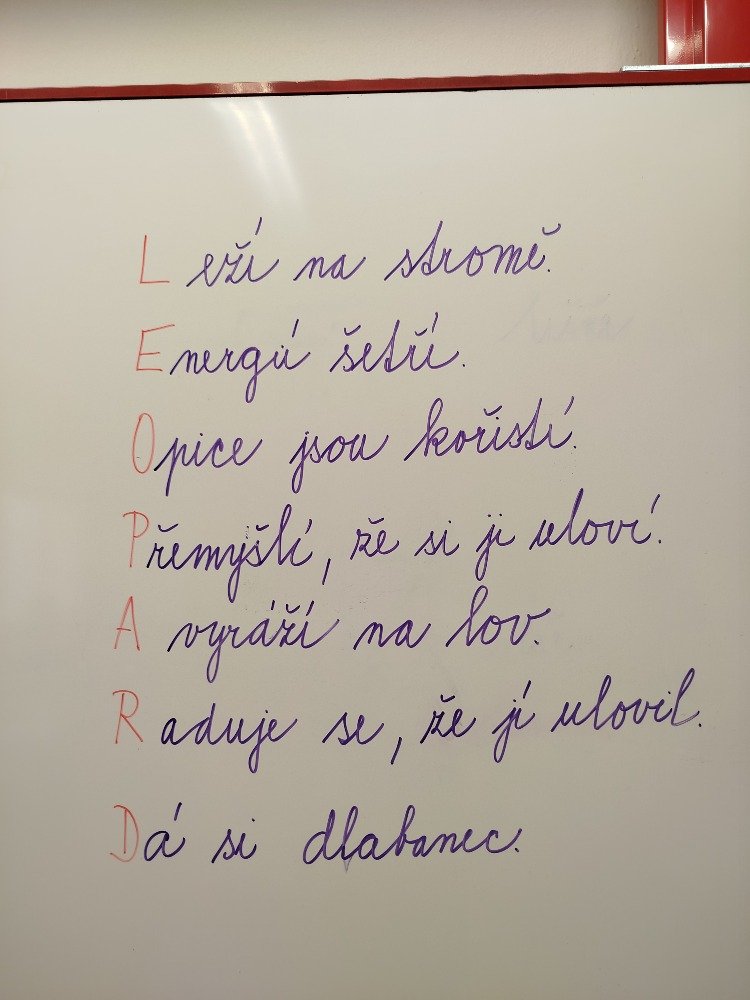 Leží na stromě.
Energii šetří.
Opice jsou kořistí.
Přemýšlí, že si ji uloví.
A vyráží na lov.
Raduje se, že jí ulovil.
Dá si dlabanec.